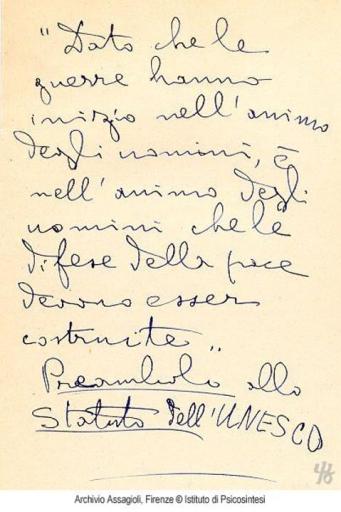 "Dato che le
guerre hanno
inizio nell'animo
degli uomini, è
nell'animo degli
uomini che le
difese della pace
devono esser
costruite„
Preambolo allo
Statuto dell'UNESCO
Archivio Assagioli, Firenze © Istituto di Psicosintesi